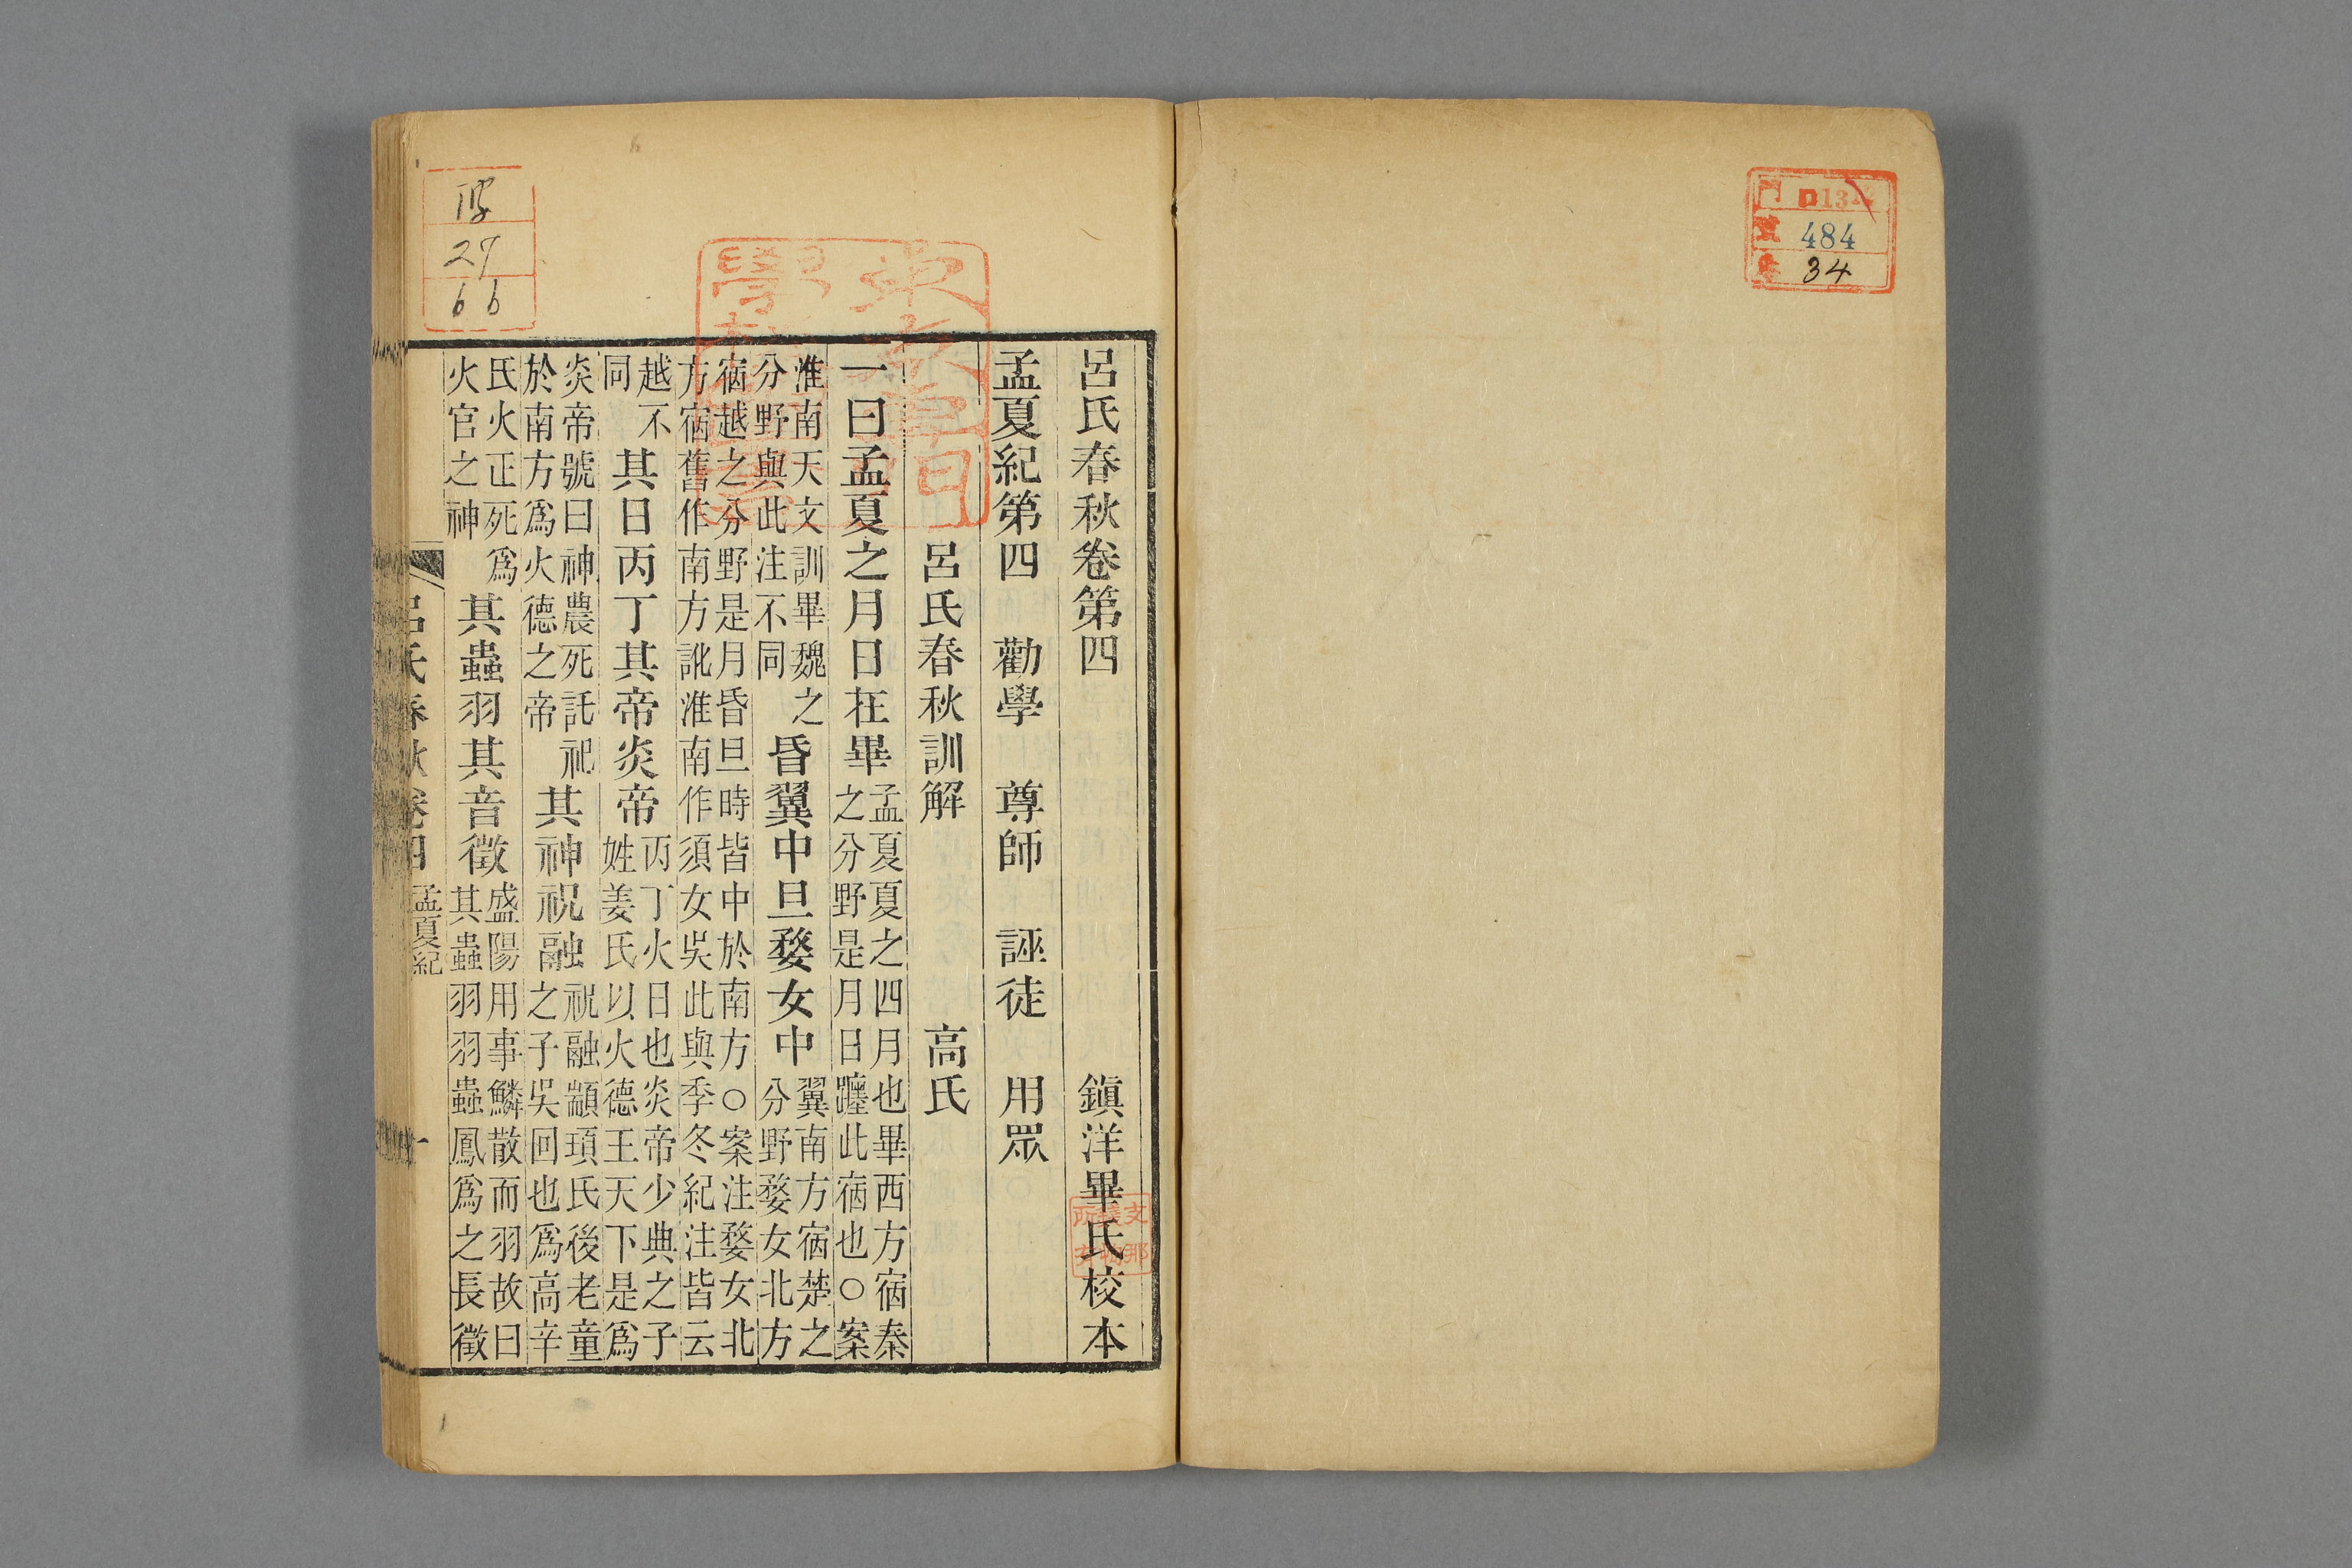 484
34
呂氏春秋卷第四　鎭洋畢氏校本
孟夏紀第四　勸學　尊師　誣徒　用眾
呂氏春秋訓解　高氏
一曰孟夏之月日在畢孟夏夏之四月也畢西方宿秦
之分野是月日躔此宿也○案
淮南天文訓畢魏之
分野與此注不同昏翼中旦婺女中翼南方宿楚之
分野婺女北方
宿越之分野是月昏旦時皆中於南方○案注婺女北
方宿舊作南方訛淮南作須女吳此與季冬紀注皆云
越不
同其日丙丁其帝炎帝丙丁火日也炎帝少典之子
姓姜氏以火德王天下是爲
炎帝號曰神農死託祀
於南方爲火德之帝其神祝融祝融顓頊氏後老童
之子吳回也爲高辛
氏火正死爲
火官之神其蟲羽其音徵盛陽用事鱗散而羽故曰
其蟲羽羽蟲鳳爲之長徵
呂氏春秋卷四　孟夏紀　一
27
66